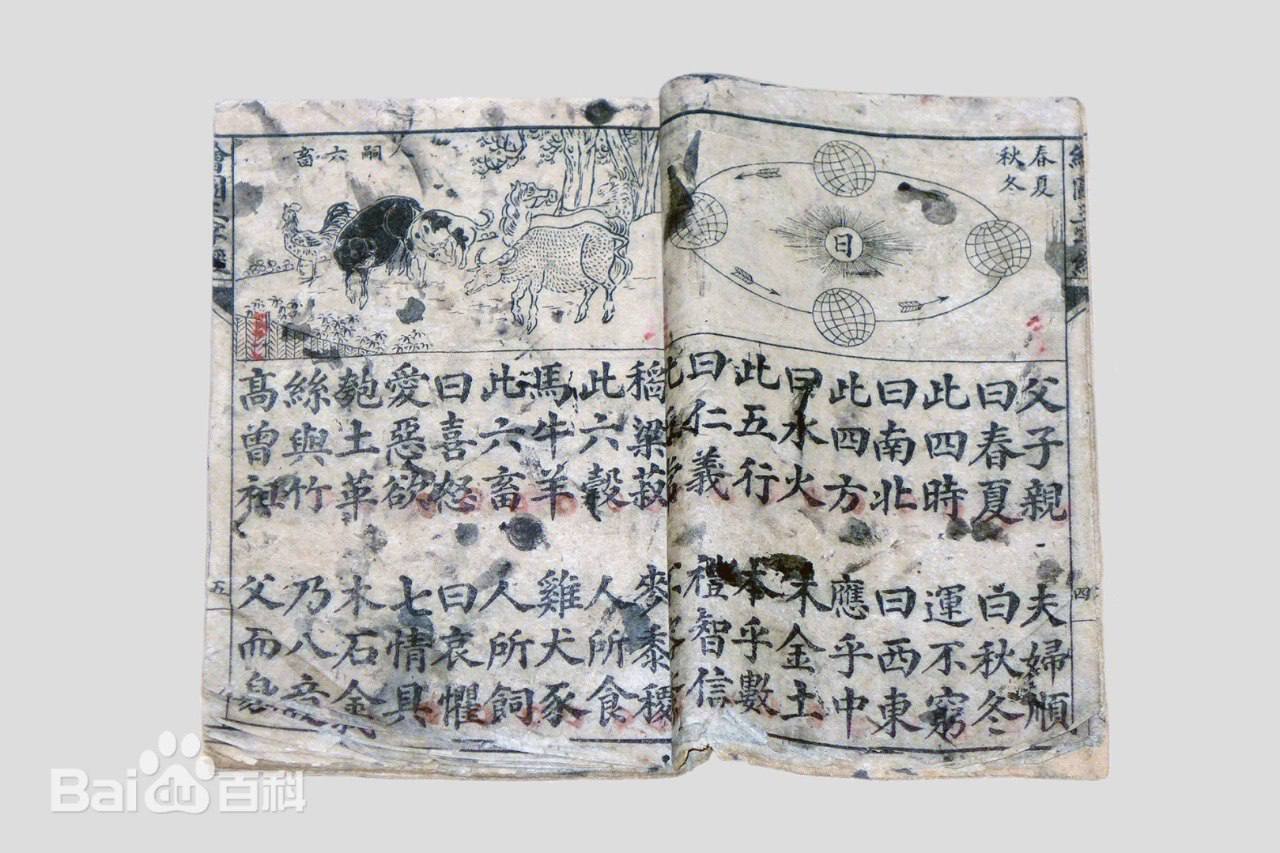 繪圖三字經
四
春夏
秋冬
父子親 夫婦順
曰春夏 曰秋冬
此四時 運不窮
曰南北 曰西東
此四方 應乎中
曰水火 木金土
此五行 本乎數
曰仁義 禮智信
嗣六畜
稻粱菽 麥黍稷
此六穀 人所食
馬牛羊 雞犬豕
此六畜 人所飼
曰喜怒 曰哀懼
愛惡欲 七情具
匏土革 木石金
絲與竹 乃八音
高曾祖 父而身
繪圖三字經
五
日
Bai du 百科